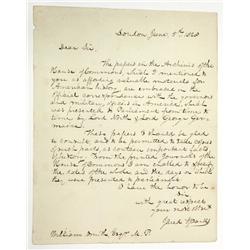 London June 5th 1828
Dear Sir,
The papers in the Archives of the
House of Commons, which I mentioned to
you as affording valuable materials for
American history, are embraced in the
Official correspondences with the governors
and military officers in America, which
was presented to Parliament from time to
time by Lord North & Lord George Ger-
maine.
These papers I should be glad
to consult, and to be permitted to take copies
of such parts, as contain important facts
of history. From the printed Journals of the
House of Commons I am enabled to specify
the dates of the whole and the days on which
they were presented to parliament.
I have the honor to be
Sir
with great respect
your most obt. Servt
Jared Sparks
William Smith Esqr. M. P.